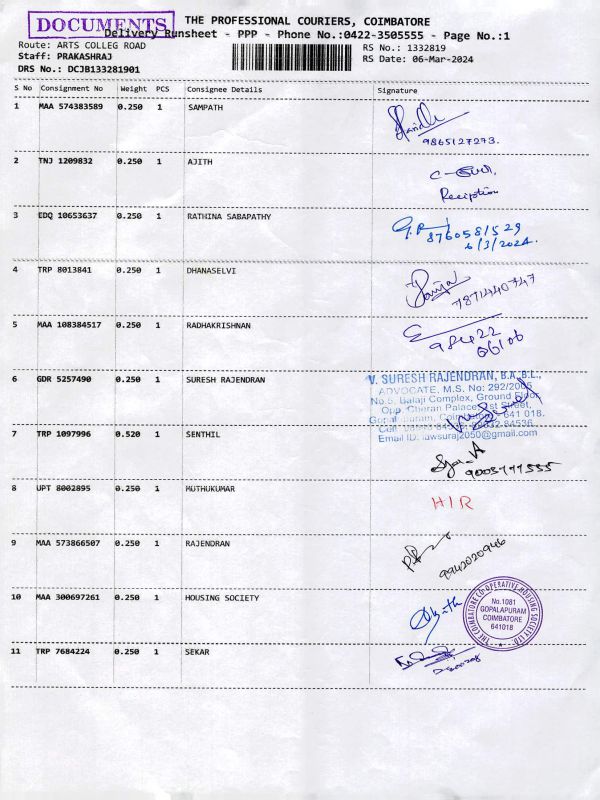 DOCUMENTS
THE PROFESSIONAL COURIERS, COIMBATORE
Delivery Runsheet - PPP - Phone No.:0422-3505555 - Page No.:1
Route: ARTS COLLEG ROAD
RS No.: 1332819
Staff: PRAKASHRAJ
RS Date: 06-Mar-2024
DRS No.: DCJB133281901
S No Consignment No Weight PCS Consignee Details Signature
1 MAA 574383589 0.250 1 SAMPATH
9865127273.
2 TNJ 1209832 0.250 1 AJITH
Reciption
3 EDQ 10653637 0.250 1 RATHINA SABAPATHY
8760581529
6/3/2024.
4 TRP 8013841 0.250 1 DHANASELVI
7871440747
5 MAA 108384517 0.250 1 RADHAKRISHNAN
98422
6 GDR 5257490 0.250 1 SURESH RAJENDRAN
V. SURESH RAJENDRAN, B.A.,B.L.,
ADVOCATE, M.S. No: 292/2005
No.5, Balaji Complex, Ground Floor,
Opp. Cheran Palace, 1st Street,
Gopalapuram, Coimbatore - 641 018.
Email ID: lawsuraj2050@gmail.com
7 TRP 1097996 0.520 1 SENTHIL
8 UPT 8002895 0.250 1 MUTHUKUMAR
H/R
9 MAA 573866507 0.250 1 RAJENDRAN
9942020946
10 MAA 300697261 0.250 1 HOUSING SOCIETY
THE COIMBATORE CO-OPERATIVE HOUSING SOCIETY LTD.
No.1081
GOPALAPURAM
COIMBATORE
641018
11 TRP 7684224 0.250 1 SEKAR